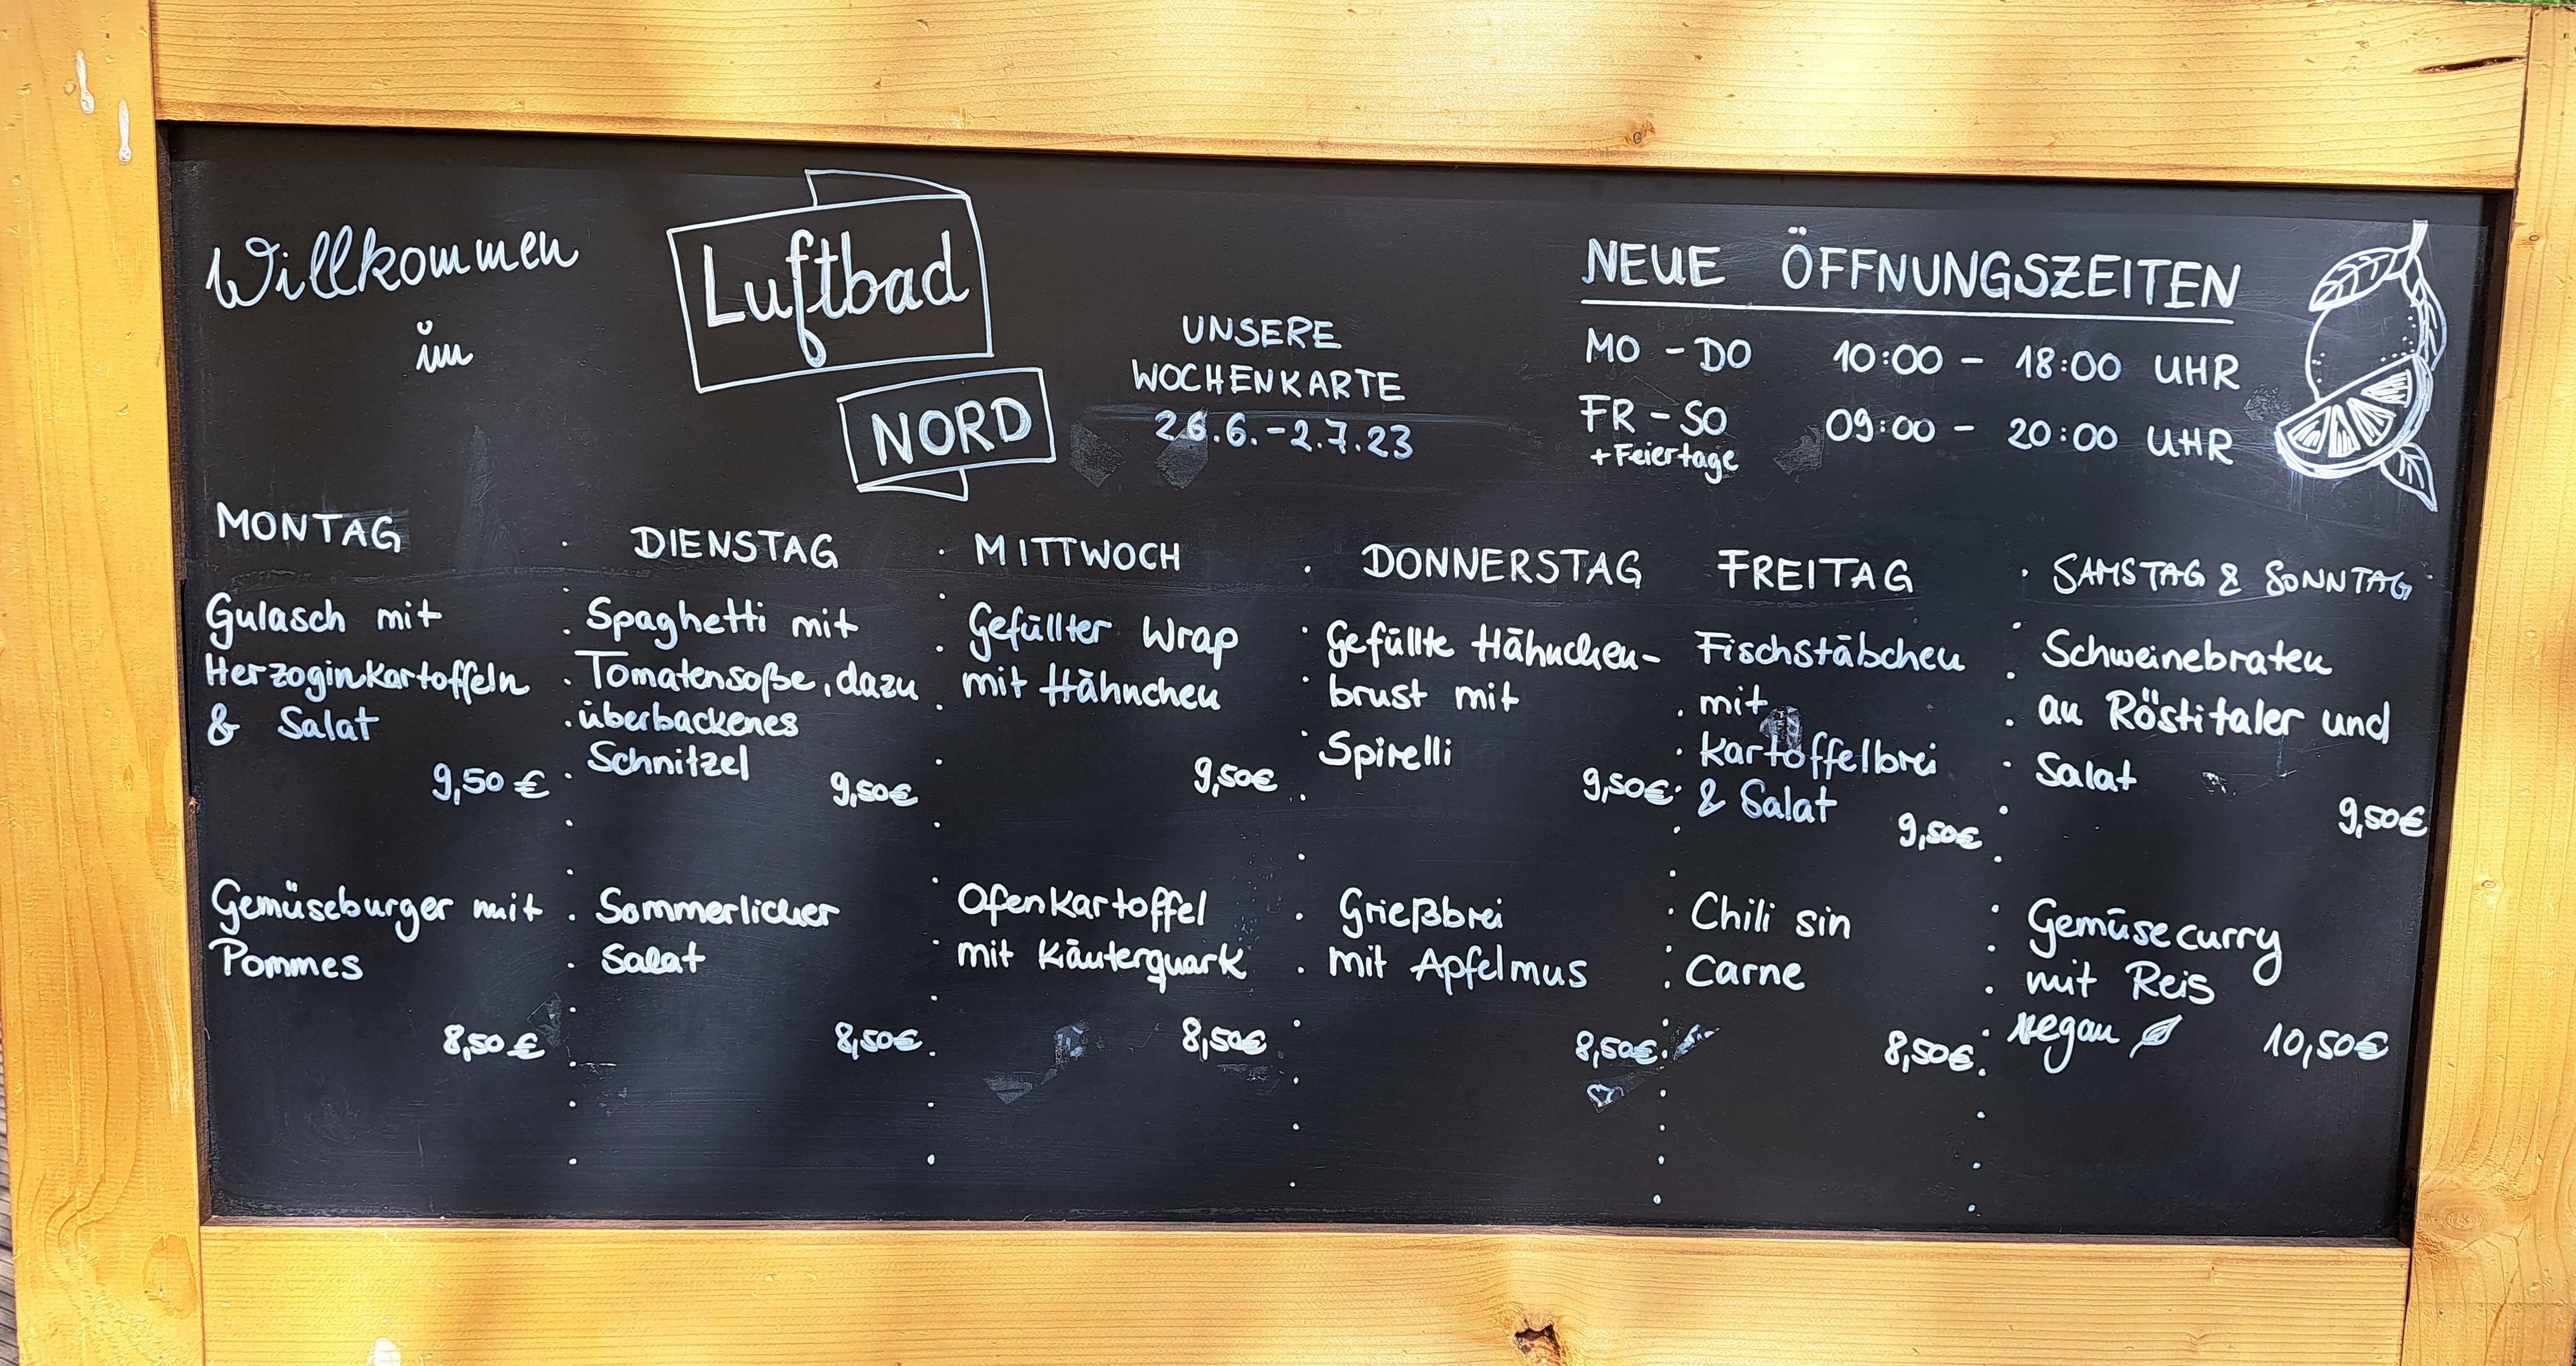 Willkommen
im
Luftbad
NORD
UNSERE
WOCHENKARTE
26.6.-2.7.23
NEUE ÖFFNUNGSZEITEN
MO - DO 10:00 - 18:00 UHR
FR - SO 09:00 - 20:00 UHR
+ Feiertage
MONTAG
Gulasch mit
Herzoginkartoffeln
& Salat
9,50 €
Gemüseburger mit
Pommes
8,50 €
DIENSTAG
Spaghetti mit
Tomatensoße, dazu
überbackenes
Schnitzel
9,50€
Sommerlicher
Salat
8,50€
MITTWOCH
Gefüllter Wrap
mit Hähnchen
9,50€
Ofenkartoffel
mit Käuterquark
8,50€
DONNERSTAG
Gefüllte Hähnchen-
brust mit
Spirelli
9,50€
Grießbrei
mit Apfelmus
8,50€
FREITAG
Fischstäbchen
mit
Kartoffelbrei
& Salat
9,50€
Chili sin
Carne
8,50€
SAMSTAG & SONNTAG
Schweinebraten
an Röstitaler und
Salat
9,50€
Gemüsecurry
mit Reis
vegan 10,50€